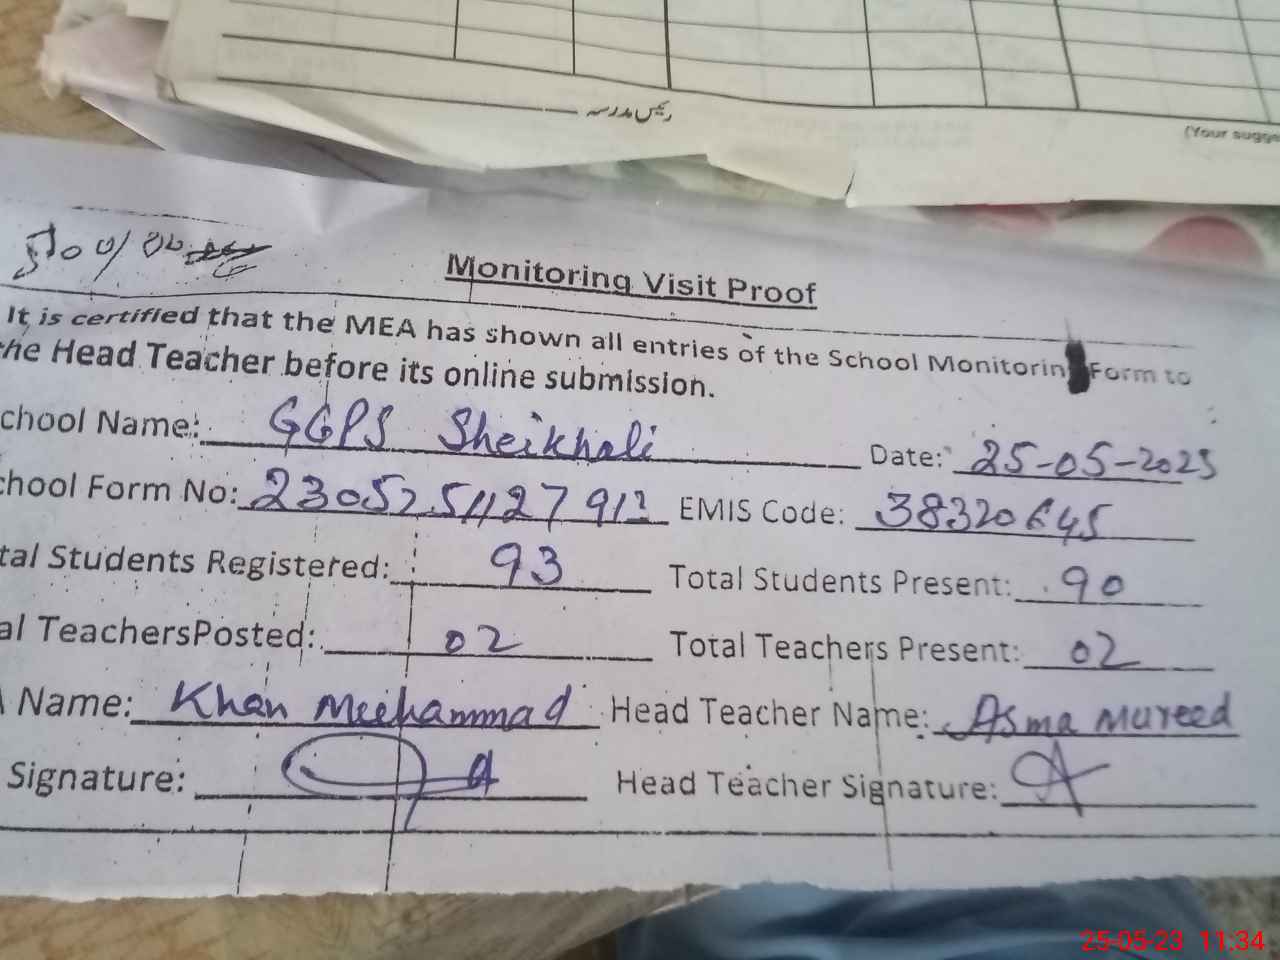 رئیس مدرسہ
(Your sugge
Monitoring Visit Proof
It is certified that the MEA has shown all entries of the School Monitorin Form to
the Head Teacher before its online submission.
chool Name: GGPS Sheikhali Date: 25-05-2023
chool Form No: EMIS Code: 38320645
tal Students Registered: 93 Total Students Present: 90
al TeachersPosted: 02 Total Teachers Present: 02
Name: Khan Muhammad Head Teacher Name: Asma Mureed
Signature: Head Teacher Signature:
25-05-23 11:34